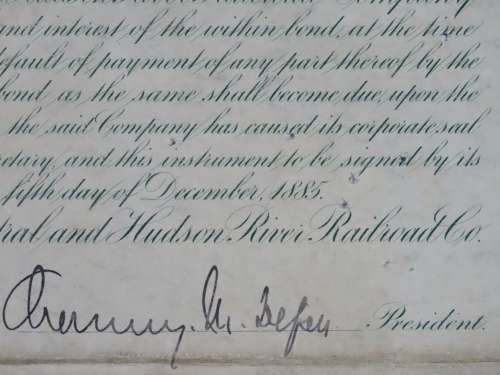 and interest of the within bond, at the time
default of payment of any part thereof by the
bond as the same shall become due, upon the
the said Company has caused its corporate seal
retary, and this instrument to be signed by its
fifth day of December, 1885.
ral and Hudson River Railroad Co.
Chauncey. M. Depew President.